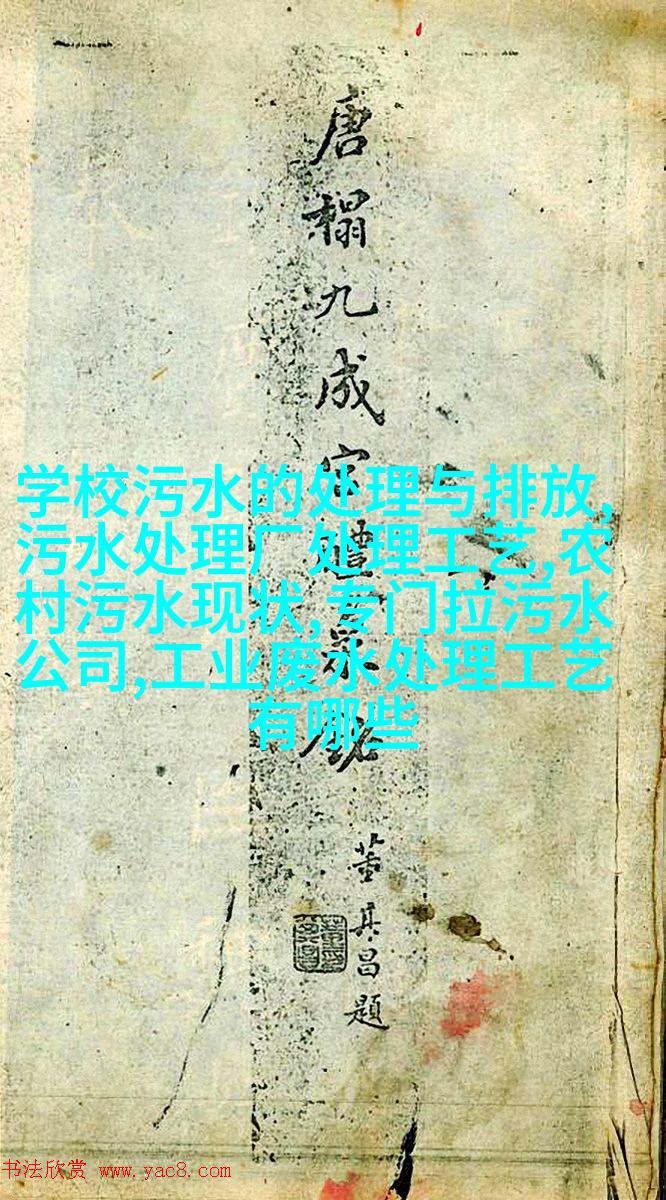 唐榻九成宫醴泉铭
董其昌題
学校污水的处理与排放,
污水处理厂处理工艺,农
村污水现状,专门拉污水
公司,工业废水处理工艺
有哪些
书法欣赏 www.yac8.com